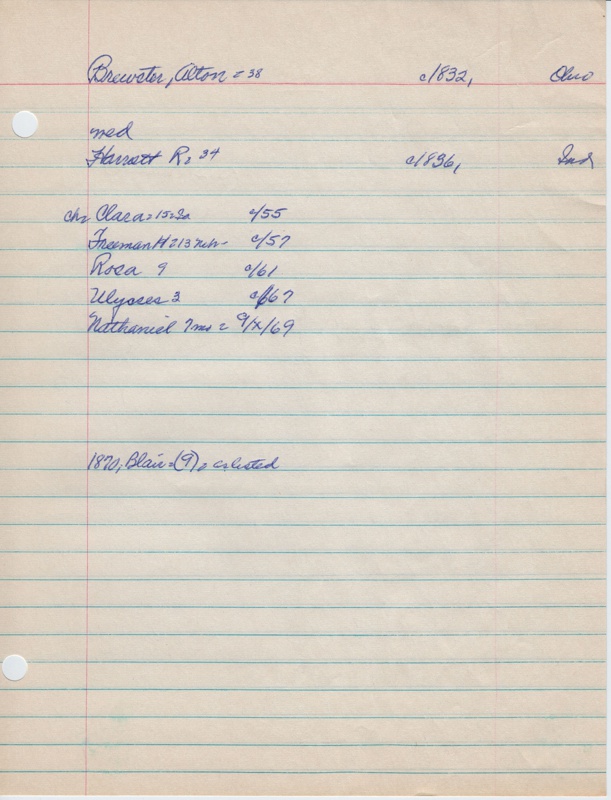 Brewster, Alton = 38 c/1832, Ohio
med
Harrett R = 34 c/1836, Ind
ch = Clara = 15 = Ia c/55
Freeman H = 13 Neb - c/57
Rosa 9 c/61
Ulysses 3 c/67
Nathaniel 7 ms = c/x/69
1870, Blair = (9) = as listed